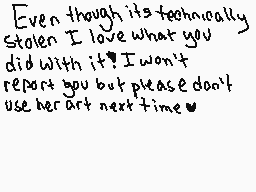 Even though its technically
stolen I love what you
did with it! I won't
report you but please don't
use her art next time♥